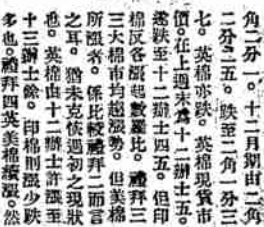 角二分一。十二月期由二角
二分二五。跌至二角一分三
七。英棉亦跌。英棉現貨市
價。在上週末爲十二辦士五。
遂跌至十二辦士四五。但印
棉反各漲起數羅比。禮拜三
三大棉市均趨漲勢。但美棉
所漲者。係比較禮拜二而言
之耳。猶未克恢週初之現狀
也。英棉由十二辦士許漲至
十三辦士餘。印棉則漲少跌
多也。禮拜四英美棉續漲。然